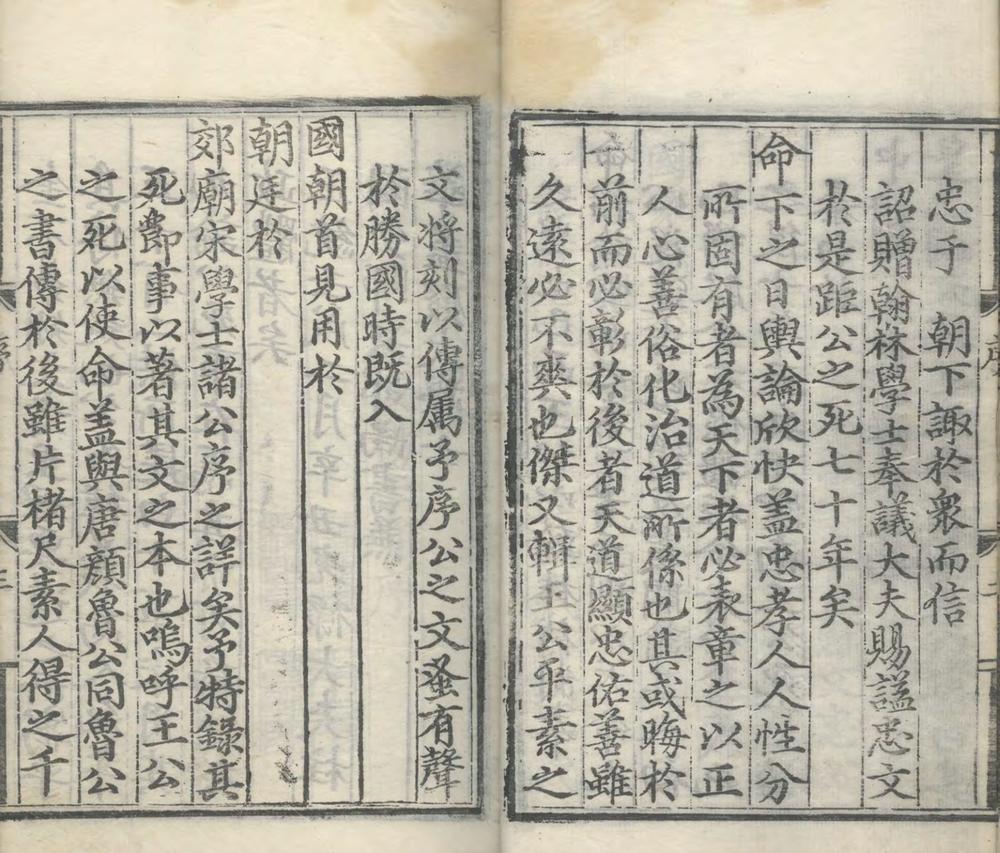 忠于　朝下諏於衆而信
詔贈翰林學士奉議大夫賜謚忠文
於是距公之死七十年矣
命下之日輿論欣快盖忠孝人人性分
所固有者為天下者必表章之以正
人心善俗化治道所係也其或晦於
前而必彰於後者天道顯忠佑善雖
久遠必不爽也傑又輯王公平素之
文將刻以傳属予序公之文蚤有聲
於勝國時既入
國朝首見用於
朝廷於
郊廟宋學士諸公序之詳矣予特錄其
死節事以著其文之本也嗚呼王公
之死以使命盖與唐顏魯公同魯公
之書傳於後雖片楮尺素人得之千